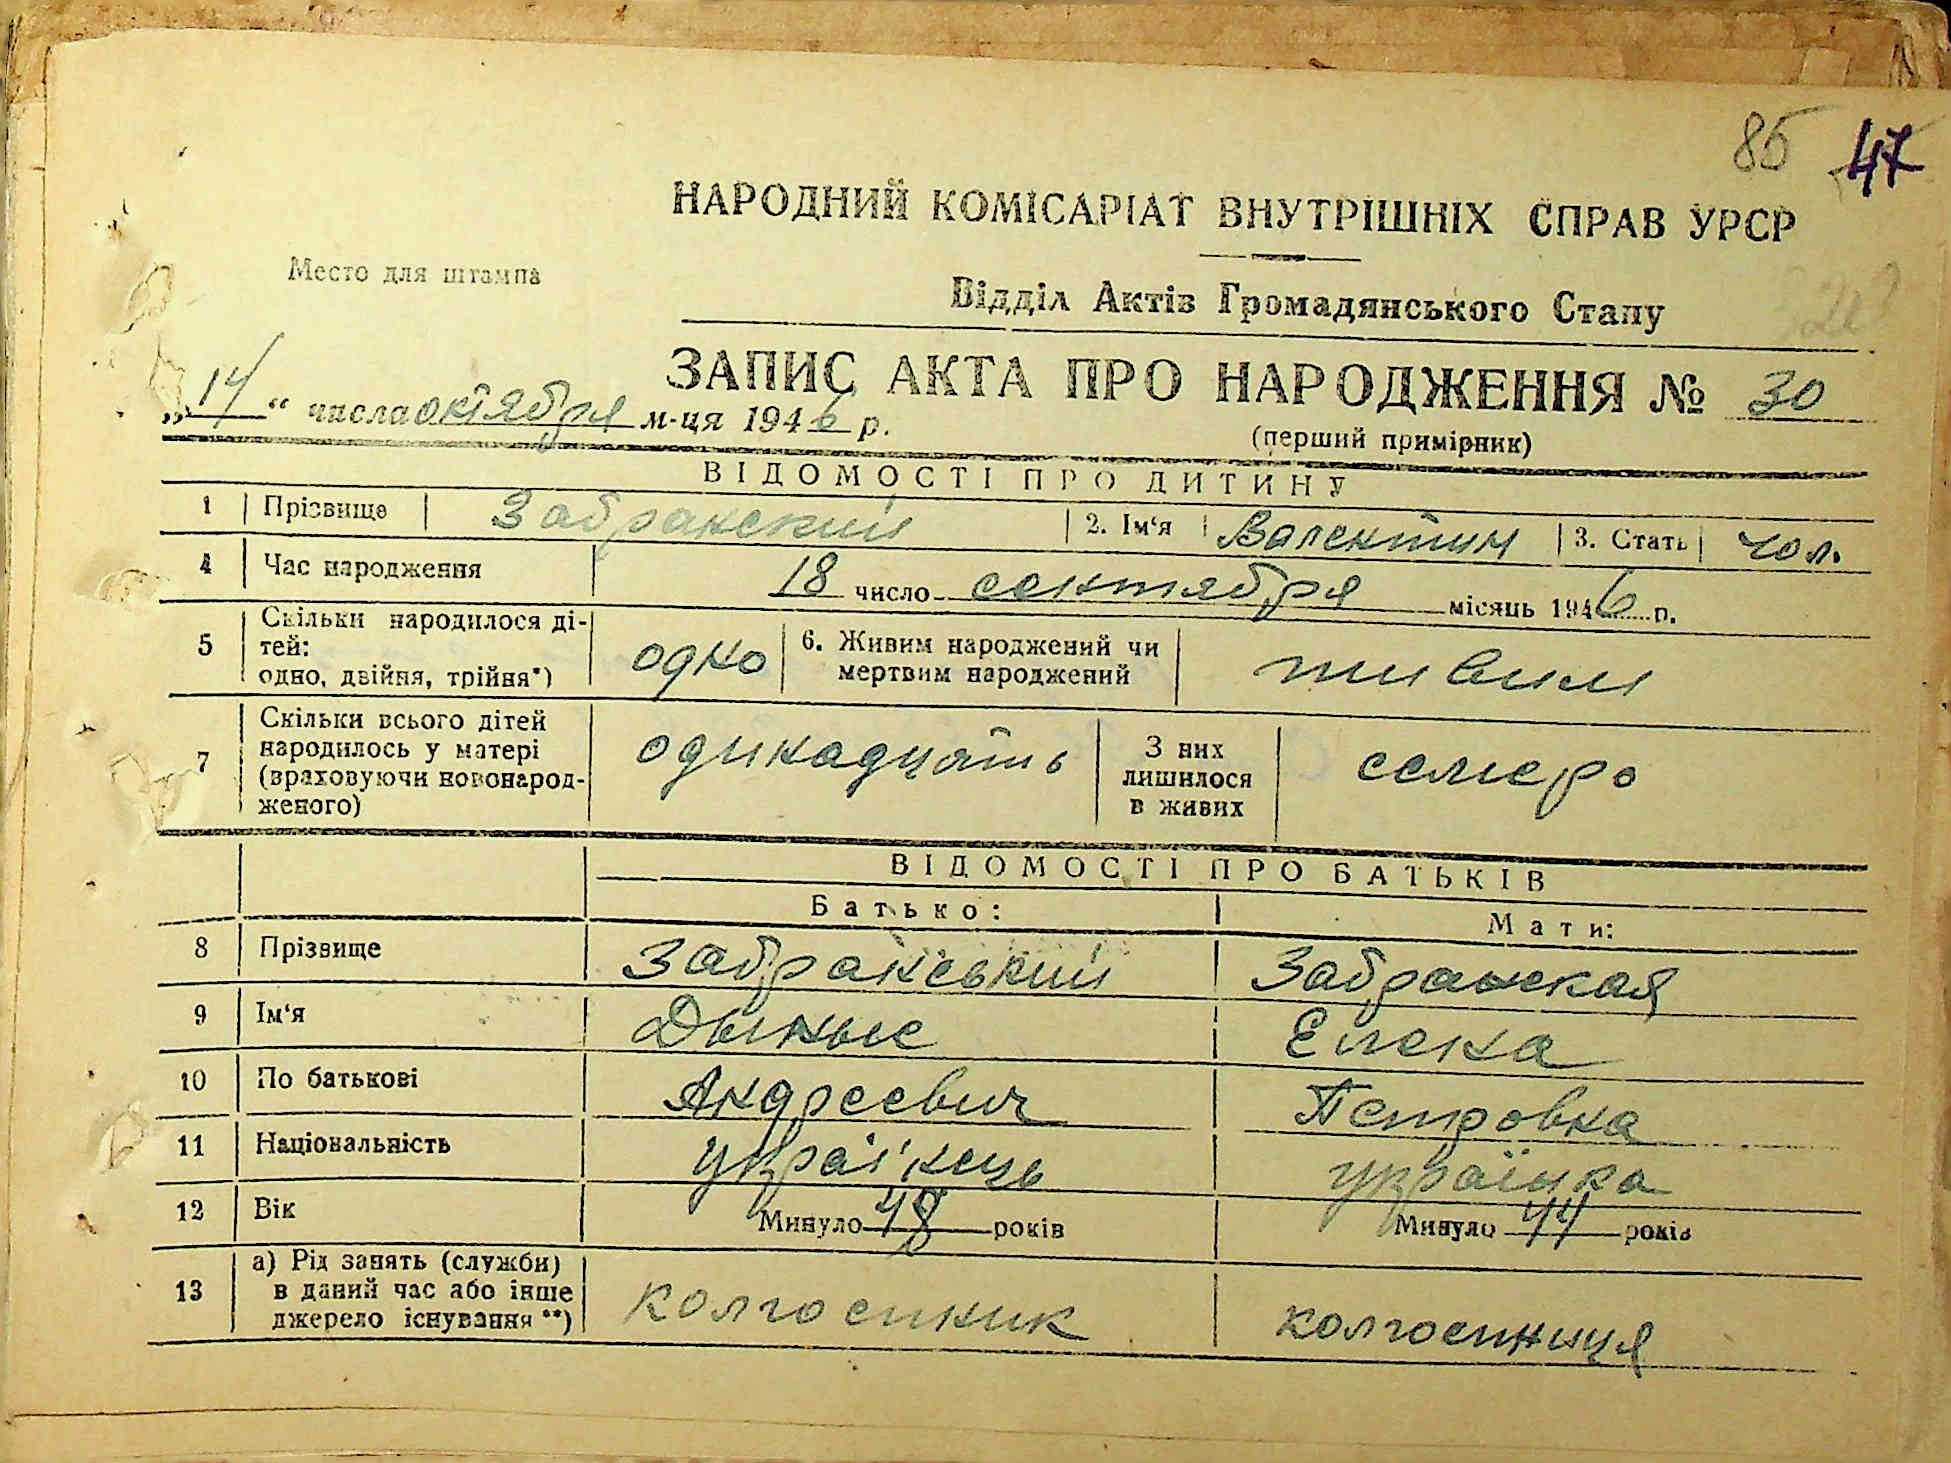 85 47
НАРОДНИЙ КОМІСАРІАТ ВНУТРІШНІХ СПРАВ УРСР
Место для штампа
Відділ Актів Громадянського Стану
ЗАПИС АКТА ПРО НАРОДЖЕННЯ № 30
„14“ числа октября м-ця 1946 р.
(перший примірник)
ВІДОМОСТІ ПРО ДИТИНУ
1 Прізвище Забранский 2. Ім‘я Валентин 3. Стать чол.
4 Час народження 18 число сентября місяць 1946 р.
5 Скільки народилося ді-
тей:
одно, двійня, трійня*) одно
6. Живим народжений чи
мертвим народжений живим
7 Скільки всього дітей
народилось у матері
(враховуючи новонарод-
женого) одинадцять
З них
лишилося
в живих семеро
ВІДОМОСТІ ПРО БАТЬКІВ
Батько: Мати:
8 Прізвище Забранський Забранская
9 Ім‘я Дыныс Елена
10 По батькові Андреевич Петровна
11 Національність українець українка
12 Вік Минуло 48 років Минуло 44 років
13 а) Рід занять (служби)
в даний час або інше
джерело існування **) колгоспник колгоспниця